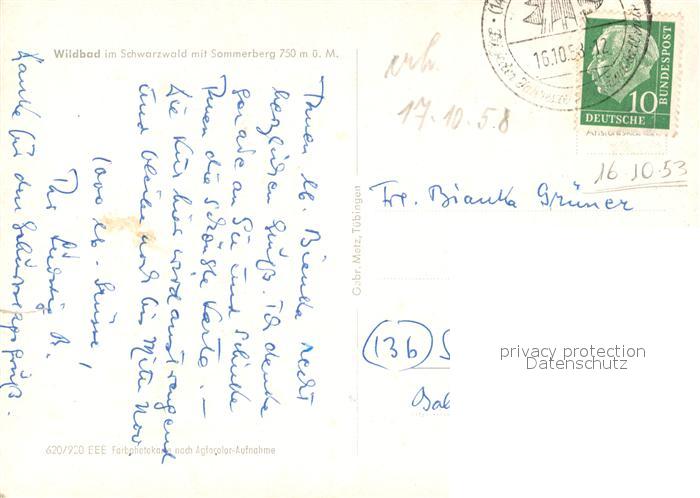 Wildbad im Schwarzwald mit Sommerberg 750 m ü. M.
Ihnen lb. Bianka recht
herzlichen Gruß. Ich denke
gerade an Sie und schicke
Ihnen die schönste Karte. —
Die Kur hier wird anstrengend
und bleibe noch bis Mitte Nov.
1000 lb. Grüsse!
Ihr Ludwig B.
Danke für den Geburtstagsgruß.
620/920 EEE Farbphotokarte nach Agfacolor-Aufnahme
Gebr. Metz, Tübingen
erh.
17.10.58
16.10.58-12
10
DEUTSCHE
BUNDESPOST
16.10.53
Fr. Bianka Grüner
(13b) S
privacy protection
Datenschutz